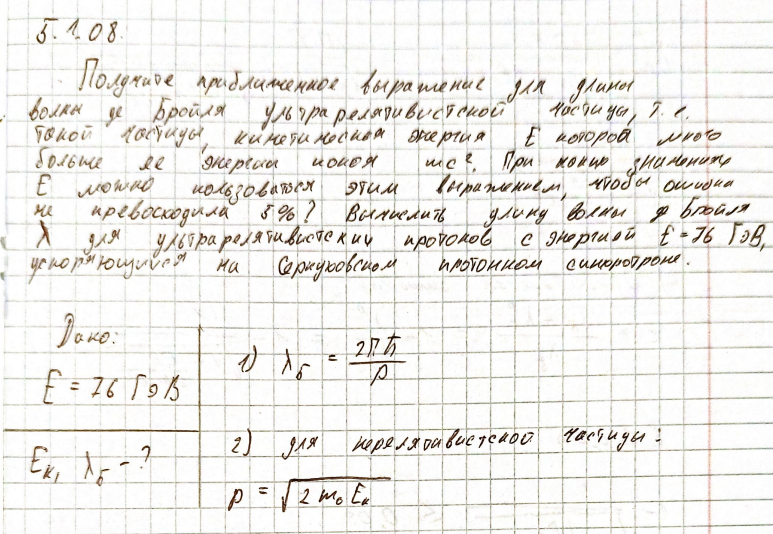 5.1.08.
Получите приближенное выражение для длины
волны де Бройля ультрарелятивистской частицы, т. е.
такой частицы, кинетическая энергия E которой много
больше ее энергии покоя mc². При каких значениях
E можно пользоваться этим выражением, чтобы ошибка
не превосходила 5%? Вычислить длину волны де Бройля
λ для ультрарелятивистских протонов с энергией E = 76 ГэВ,
ускоряющихся на Серпуховском протонном синхротроне.
Дано:
E = 76 ГэВ
Eк, λБ - ?
1) λБ = 2πħ / p
2) для нерелятивистской частицы:
p = √(2 m₀ Eк)